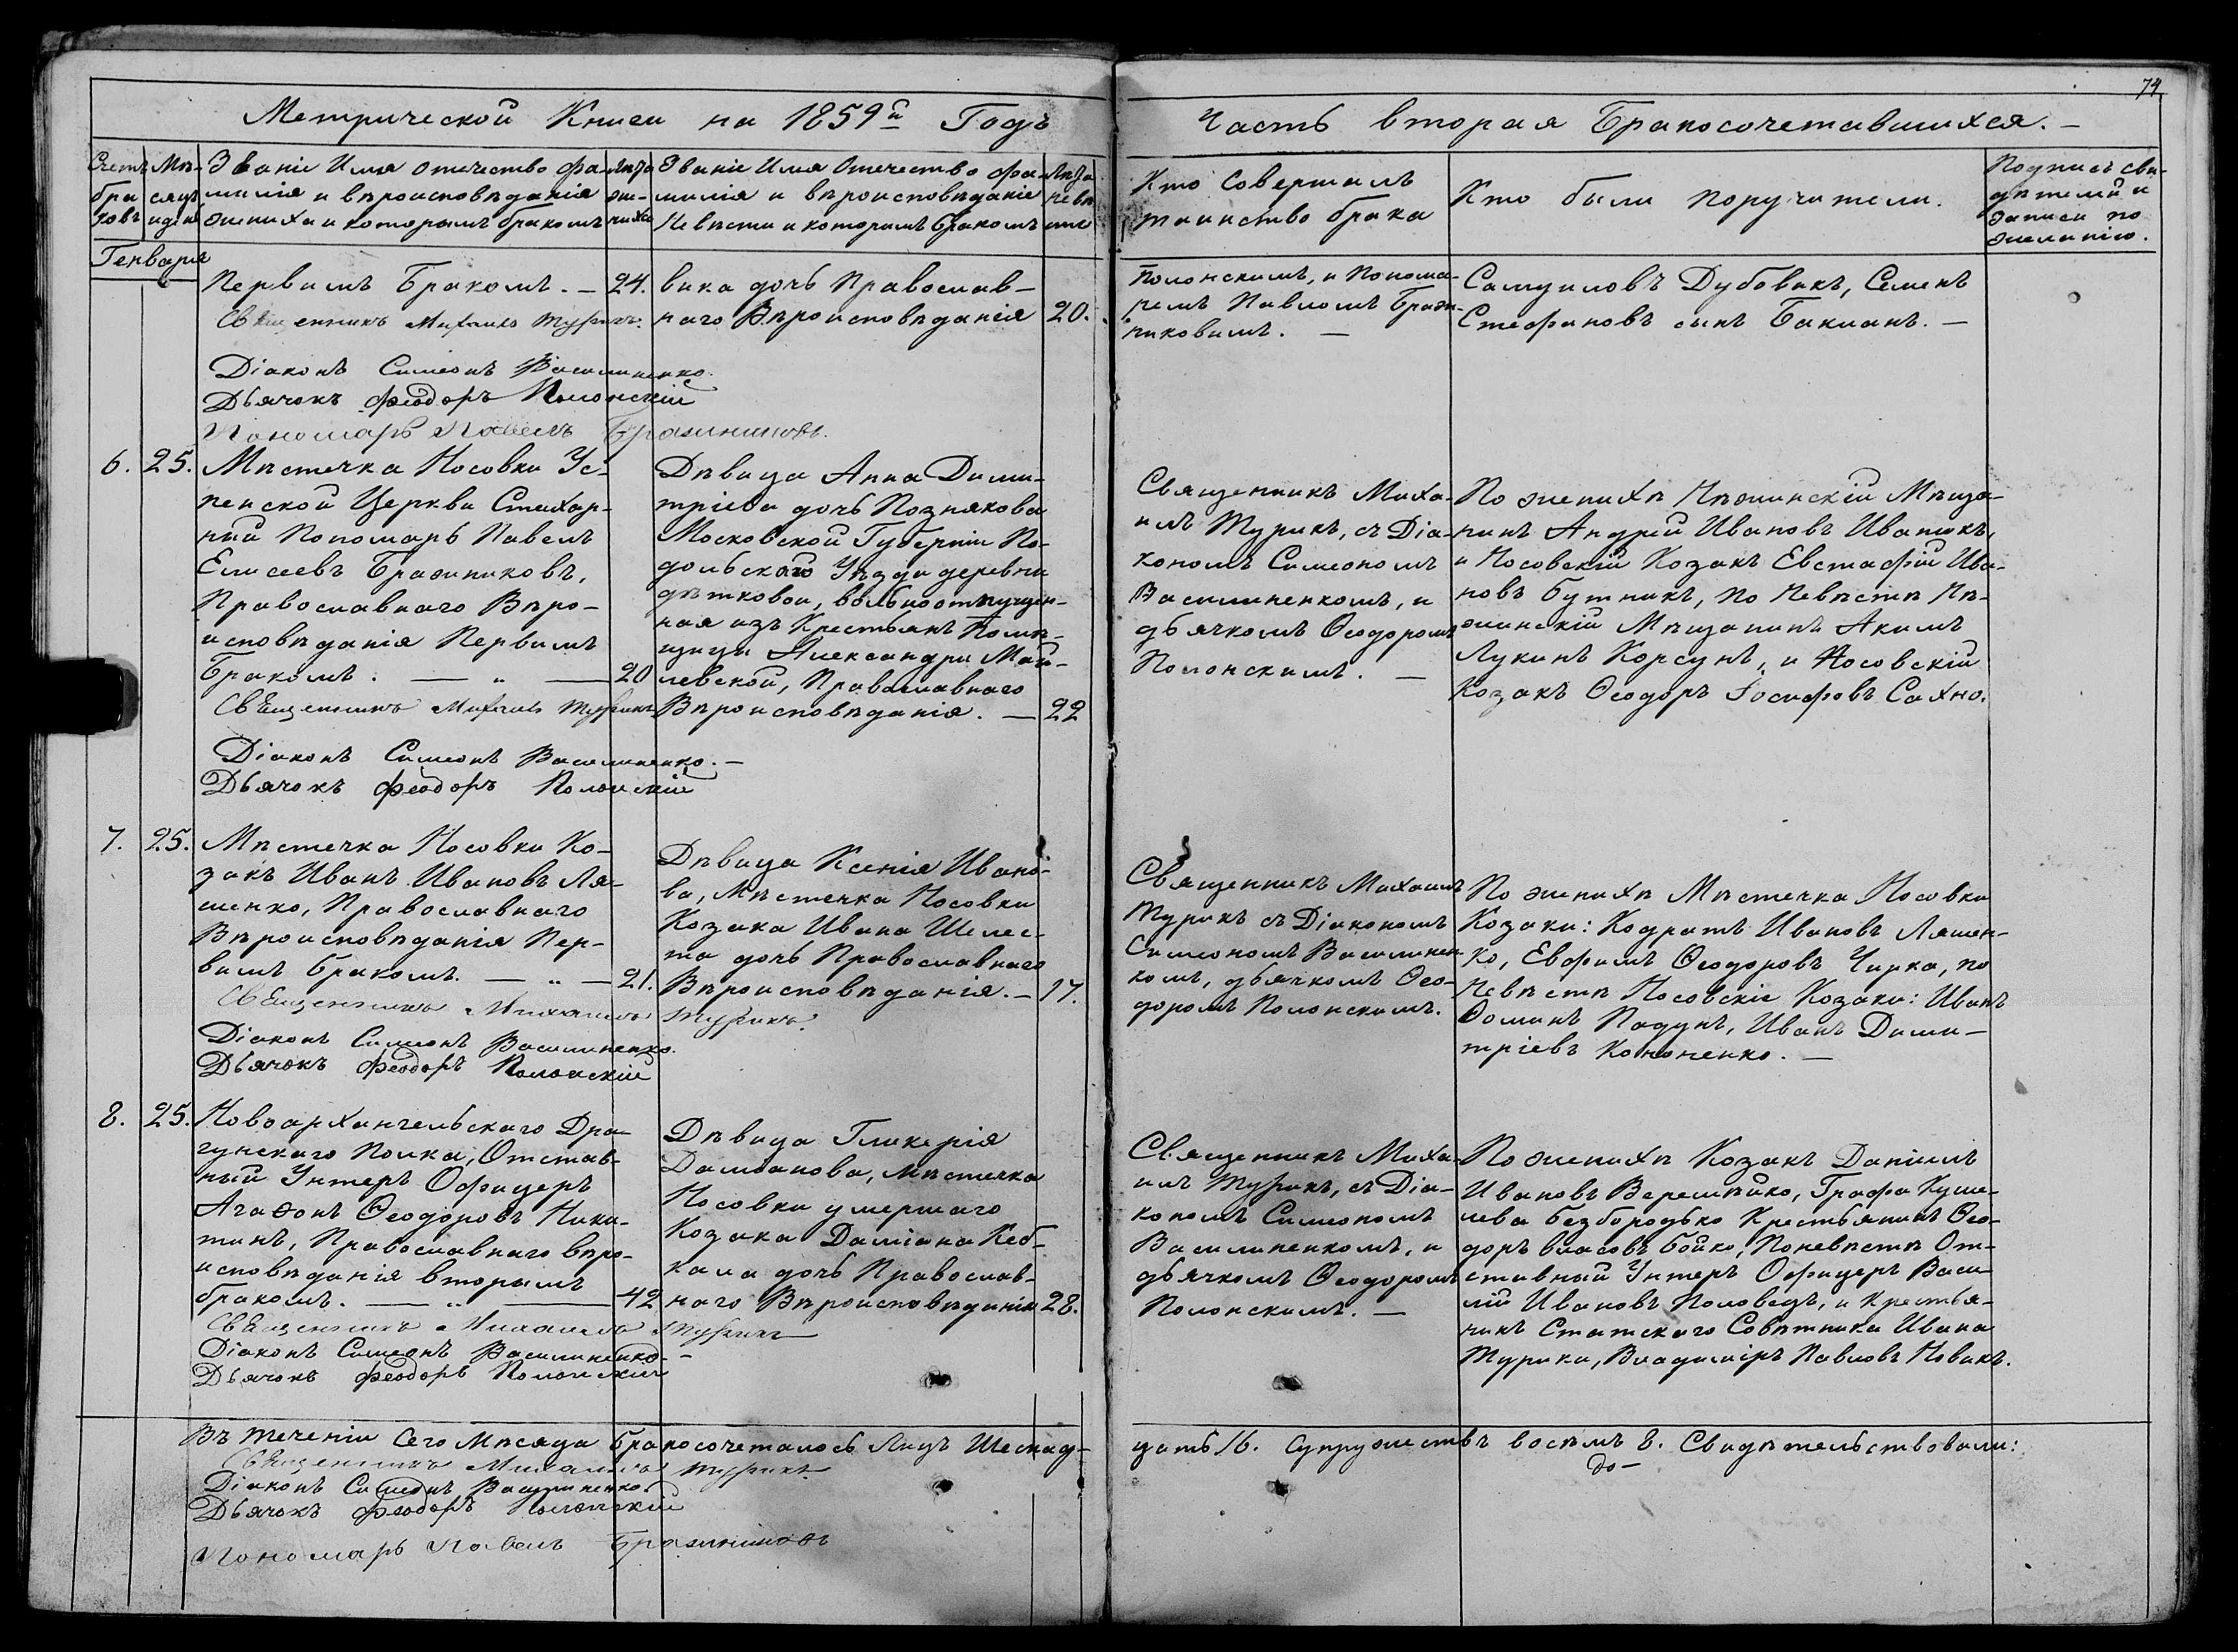 74
Метрической Книги на 1859й Годъ
Часть вторая Бракосочетавшихся. —
Счетъ браковъ
Мѣсяцъ и день
Званіе Имя отечество фа-
милія и вѣроисповѣданія
жениха и которымъ бракомъ
Лѣта жениха
Званіе Имя Отечество фа-
милія и вѣроисповѣданіе
Невѣсти и которимъ бракомъ
Лѣта невѣсти
Кто совершалъ
таинство брака
Кто были поручители.
Подпись сви-
дѣтелей и
записи по
желанію.
Генваря
Первимъ Бракомъ. — 24.
Священникъ Михаилъ Турикъ.
Діаконъ Симеонъ Василиненко.
Дьячокъ Феодоръ Полонскій
Пономарь Павелъ Бражниковъ.
вика дочь Православ-
наго Вѣроисповѣданія 20.
Полонскимъ, и Понома-
ремъ Павломъ Браж-
никовимъ. —
Самуиловъ Дубовикъ, Семенъ
Стефановъ сынъ Бакланъ. —
6. 25. Мѣстечка Носовки Ус-
пенской Церкви Стихар-
ній Пономарь Павелъ
Елисеевъ Бражниковъ,
Православнаго Вѣро-
исповѣданія Первимъ
Бракомъ. — „ — 20
Священникъ Михаилъ Турикъ
Діаконъ Симеонъ Василиненко. —
Дьячокъ Феодоръ Полонскій
Дѣвица Анна Дими-
тріева дочь Познякова
Московской Губерніи По-
дольского Уѣзда деревни
дѣтковой, вольноотпущен-
ная изъ Крестьянъ Помѣ-
щицы Александри Май-
левской, Православнаго
Вѣроисповѣданія. — 22
Священникъ Миха-
илъ Турикъ, съ Діа-
кономъ Симеономъ
Василиненкомъ, и
дьячкомъ Ѳеодоромъ
Полонскимъ. —
По женихѣ Нѣжинскій Мѣща-
нинъ Андрей Ивановъ Иванюкъ,
и Носовскій Козакъ Евстафій Ива-
новъ Бутникъ, по Невѣстѣ Нѣ-
жинскій Мѣщанинъ Акимъ
Лукинъ Корсунъ, и Носовскій
Козакъ Ѳеодоръ Іосифовъ Сахно.
7. 25. Мѣстечка Носовки Ко-
закъ Иванъ Ивановъ Ля-
шенко, Православнаго
Вѣроисповѣданія Пер-
вимъ бракомъ. — „ — 21.
Священникъ Михаилъ Турикъ.
Діаконъ Симеонъ Василиненко.
Дьячокъ Феодоръ Полонскій
Дѣвица Ксенія Ивано-
ва, Мѣстечка Носовки
Козака Ивана Шелес-
та дочь Православнаго
Вѣроисповѣданія. — 17.
Священникъ Михаилъ
Турикъ съ Діакономъ
Симеономъ Василинен-
комъ, дьячкомъ Ѳео-
доромъ Полонскимъ.
По женихѣ Мѣстечка Носовки
Козаки: Кодратъ Ивановъ Ляшен-
ко, Евфимъ Ѳеодоровъ Чирка, по
Невѣстѣ Носовскіе Козаки: Иванъ
Ѳоминъ Падунъ, Иванъ Дими-
тріевъ Кононенко. —
8. 25. Новоархангельскаго Дра-
гунскаго Полка, Отстав-
ный Унтеръ Офицеръ
Агаѳонъ Ѳеодоровъ Ники-
тинъ, Православнаго вѣро-
исповѣданія вторымъ
бракомъ. — „ — 42
Священникъ Михаилъ Турикъ
Діаконъ Симеонъ Василиненко. —
Дьячокъ Феодоръ Полонскій
Дѣвица Гликерія
Даміанова, Мѣстечка
Носовки умершаго
Козака Даміана Кеб-
кала дочь Православ-
наго Вѣроисповѣданія 28.
Священникъ Миха-
илъ Турикъ, съ Діа-
кономъ Симеономъ
Василиненкомъ, и
дьячкомъ Ѳеодоромъ
Полонскимъ. —
По женихѣ Козакъ Даніилъ
Ивановъ Веремѣйко, Графа Куше-
лева Безбородько Крестьянинъ Ѳео-
доръ Власовъ Бойко, По невѣстѣ От-
ставный Унтеръ Офицеръ Васи-
лій Ивановъ Половецъ, и Крестья-
нинъ Статскаго Совѣтника Ивана
Турика, Владиміръ Павловъ Новикъ.
Въ теченіи Сего Мѣсяца бракосочеталось Лицъ Шеснад-
цать 16. Супружествъ восѣмъ 8. Свидѣтельствовали:
до —
Священникъ Михаилъ Турикъ
Діаконъ Симеонъ Василиненко.
Дьячокъ Феодоръ Полонскій
Пономарь Павелъ Бражниковъ